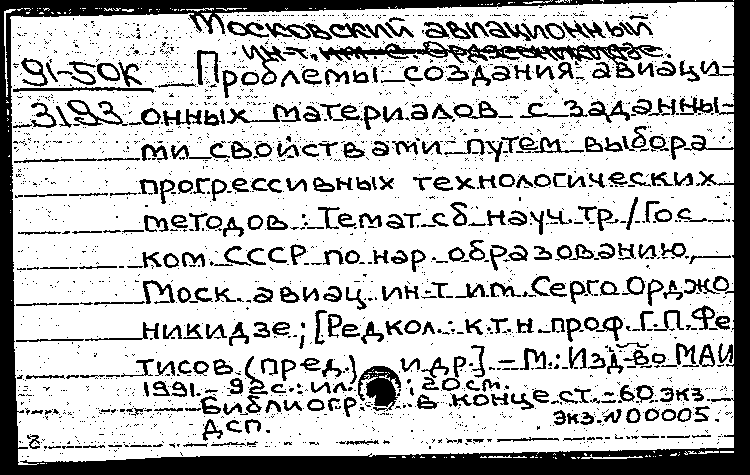 Московский авиационный
ин-т. им. С. Орджоникидзе.
91-50К Проблемы создания авиаци-
3193 онных материалов с заданны-
ми свойствами путем выбора
прогрессивных технологических
методов : Темат. сб. науч. тр. / Гос.
ком. СССР по нар. образованию,
Моск. авиац. ин-т им. Серго Орджо
никидзе ; [Редкол.: к.т.н. проф. Г.П. Фе
тисов (пред.) и др.] – М.: Изд-во МАИ
1991. – 92 с.: ил. ; 20 см.
Библиогр. в конце ст. – 60 экз
Экз. N 00005.
Дсп.
8